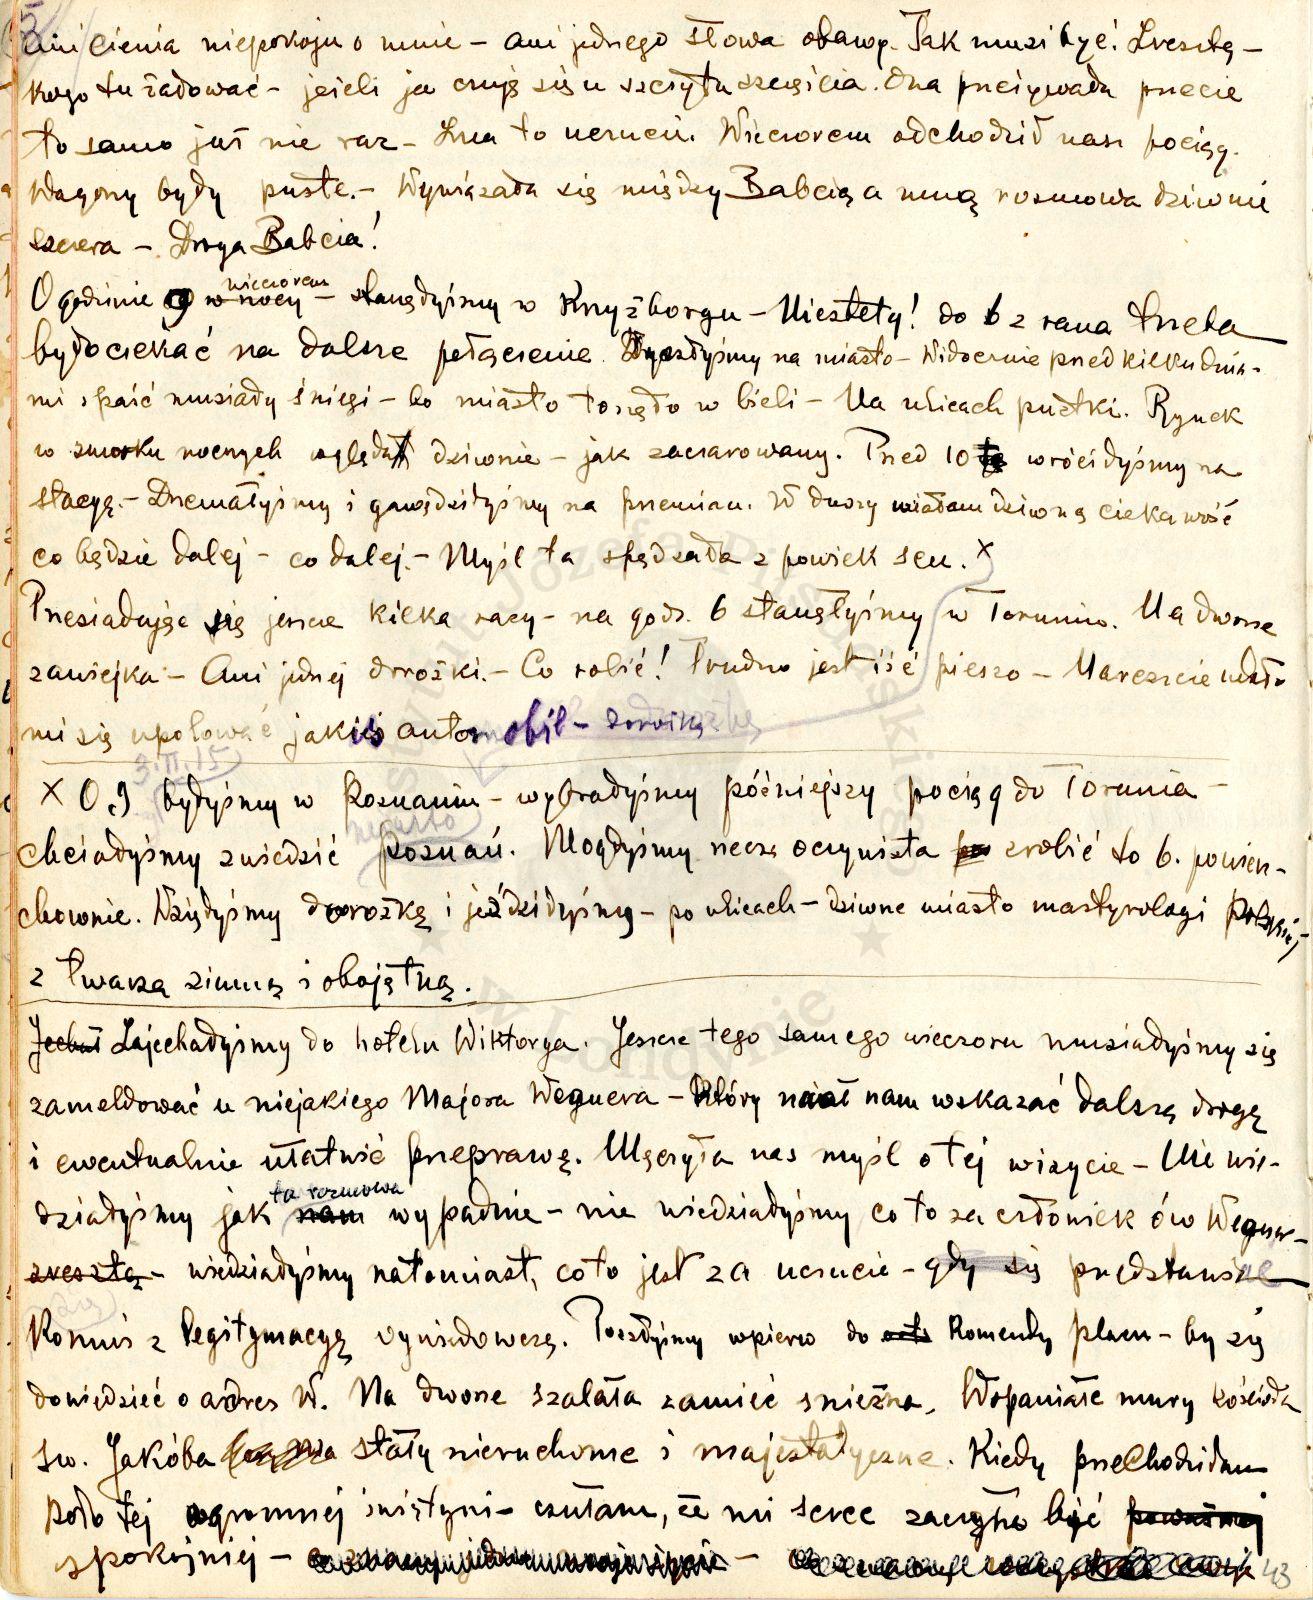 5
ani cienia niepokoju o mnie – ani jednego słowa obawy. Tak musi być! Zresztą –
kogo tu żałować – jeżeli ja czuję się u szczytu szczęścia. Ona przeżywała przecie
to samo już nie raz – Zna to uczucie. Wieczorem odchodził nasz pociąg.
Wagony były puste. – Wywiązała się między Babcią a mną rozmowa dziwnie
szczera – Droga Babcia!
wieczorem
O godzinie 9 w nocy – stanęłyśmy w Krzyżborgu – Niestety! do 6 z rana trzeba
było czekać na dalsze połączenie. Wyszłyśmy na miasto – Widocznie przed kilku dnia-
mi spaść musiały śniegi – bo miasto tonęło w bieli – Na ulicach pustki. Rynek
w zmroku nocnych wyglądał dziwnie – jak zaczarowany. Przed 10 wróciłyśmy na
stację. – Drzemałyśmy i gawędziłyśmy na przemian. W duszy miałam dziwną ciekawość
co będzie dalej – co dalej. – Myśl ta spędzała z powiek sen. X
Przesiadając się jeszcze kilka razy – na godz. 6 stanęłyśmy w Toruniu. Na dworze
zawiejka – Ani jednej drożki. – Co robić! Trudno jest iść pieszo – Nareszcie udało
mi się upolować jakiś automobil –
3.II.15
X O 9 byłyśmy w Poznaniu – wybrałyśmy późniejszy pociąg do Torunia –
miasto
chciałyśmy zwiedzić Poznań. Mogłyśmy rzecz oczywista zrobić to b. powierz-
chownie. Wzięłyśmy dorożkę i jeździłyśmy – po ulicach – dziwne miasto martyrologi polskiej
z twarzą zimną i obojętną.
Zajechałyśmy do hotelu Wiktorya. Jeszcze tego samego wieczoru musiałyśmy się
zameldować u niejakiego Majora Wegnera – który miał nam wskazać dalszą drogę
i ewentualnie ułatwić przeprawę. Męczyła nas myśl o tej wizycie – Nie wie-
ta rozmowa
działyśmy jak nam wypadnie – nie wiedziałyśmy co to za człowiek ów Wegner –
zresztą – wiedziałyśmy natomiast, co to jest za uczucie – gdy się przedstawia
komuś z legitymacyą wywiadowczą. Poszłyśmy wpierw do Komendy placu – by się
dowiedzieć o adres W. Na dworze szalała zamieć śnieżna. Wspaniałe mury kościoła
św. Jakóba stały nieruchome i majestatyczne. Kiedy przechodziłam
koło tej ogromnej świątyni – czułam, że mi serce zaczyna bić
spokojniej –
43
Instytut Józefa Piłsudskiego w Londynie